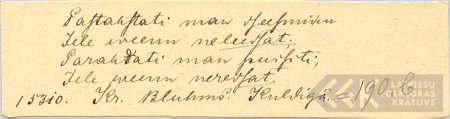 Pastahstati man dseesmiņu
Tele weenu neleedsat;
Parahdati man puisiti,
Tele weenu neredsat.
15310. Kr. Bluhms. Kuldīgā. – 190 b
LATVIEŠU
FOLKLORAS
KRĀTUVE